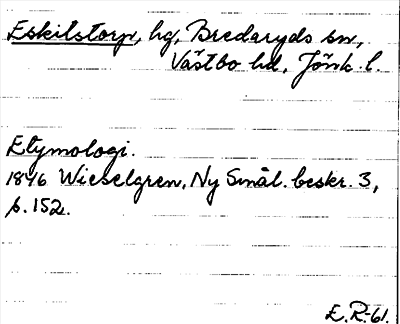 Eskilstorp, hg, Bredaryds sn,
Västbo hd, Jönk. l.
Etymologi.
1846 Wieselgren, Ny Smål. beskr. 3,
s. 152.
E.R-61.